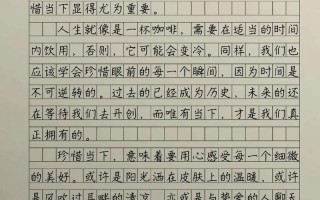 惜当下显得尤为重要。
人生就像是一杯咖啡，需要在适当的时间
内饮用，否则，它可能会变冷。同样，我们也
应该学会珍惜眼前的每一个瞬间，因为时间是
不可逆转的。过去的已经成为历史，未来的还
在等待我们去开创，而唯有当下，才是我们真
正拥有的。
珍惜当下，意味着要用心感受每一个细微
的美好。或许是阳光洒在皮肤上的温暖，或许
是风吹过耳畔的清凉，亦或是与挚爱的人聊天